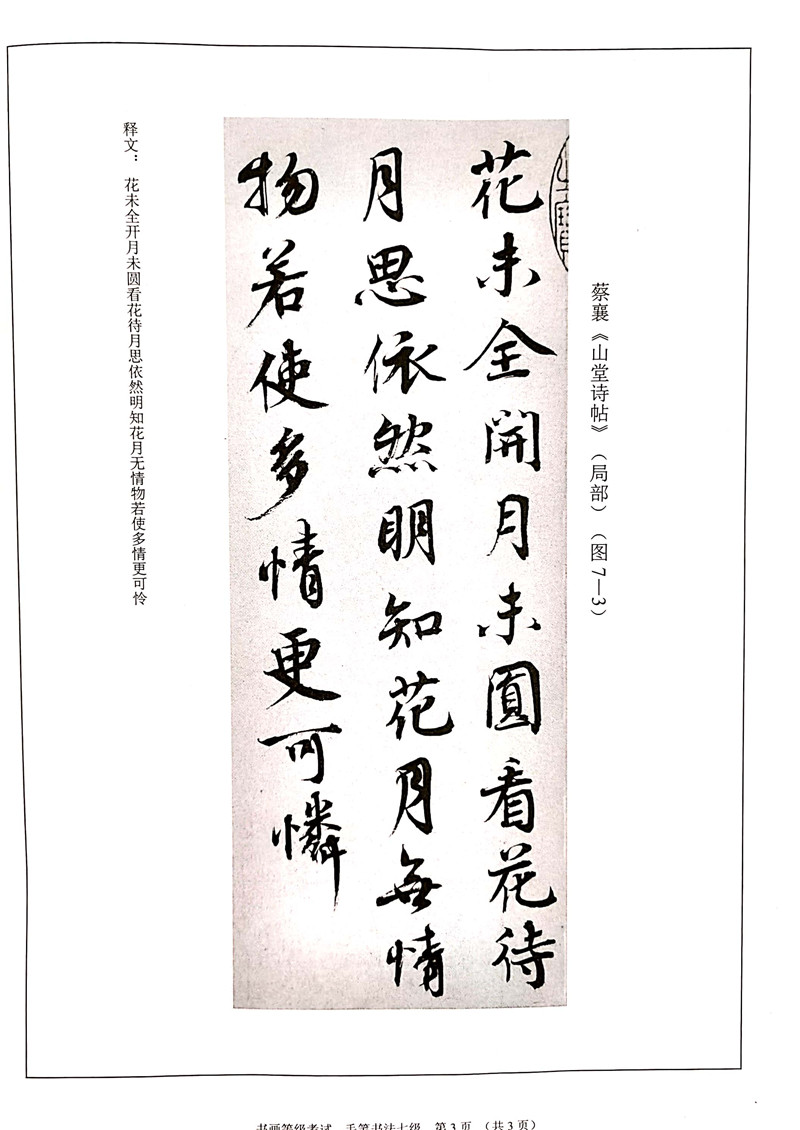 蔡襄《山堂诗帖》（局部）（图7—3）
花未全開月未圓看花待
月思依然明知花月無情
物若使多情更可憐
释文： 花未全开月未圆看花待月思依然明知花月无情物若使多情更可怜
书画等级考试 毛笔书法七级 第3页 （共3页）